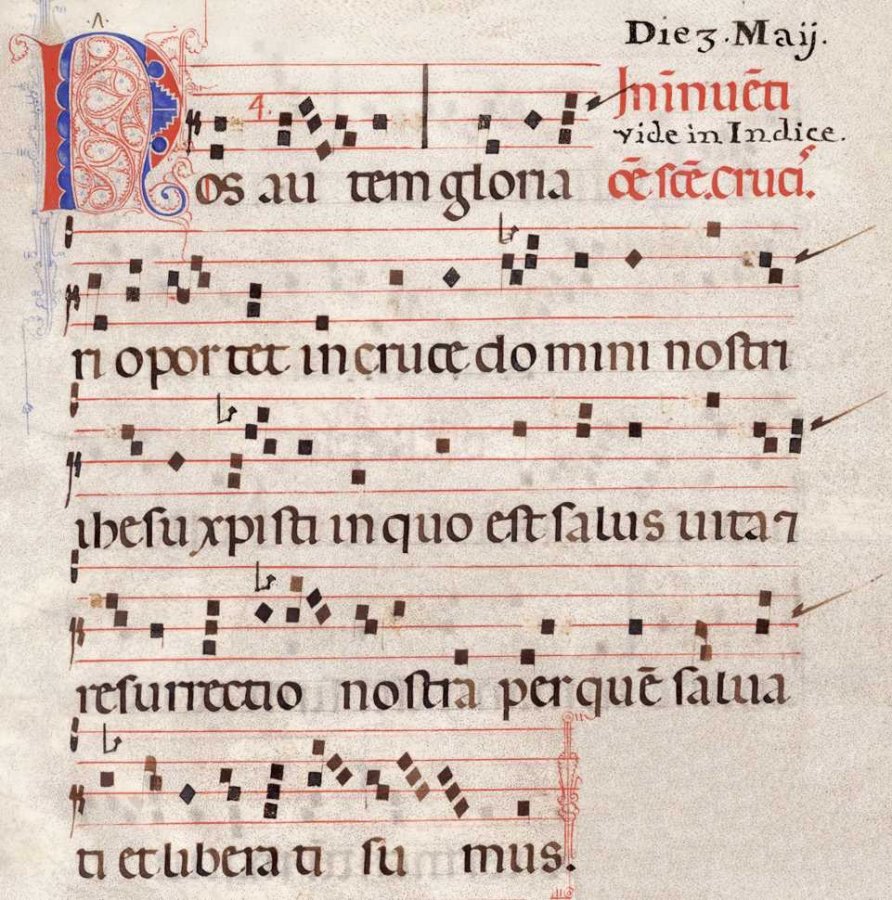 .A.
Die 3. Maij.
4.
In inuēti
vide in Indice.
Nos au tem gloria
ōe scē. cruci⁹.
ri oportet in cruce do mini nostri
ihesu xpisti in quo est salus uita ⁊
resurrectio nostra per quē salua
ti et libera ti su mus.